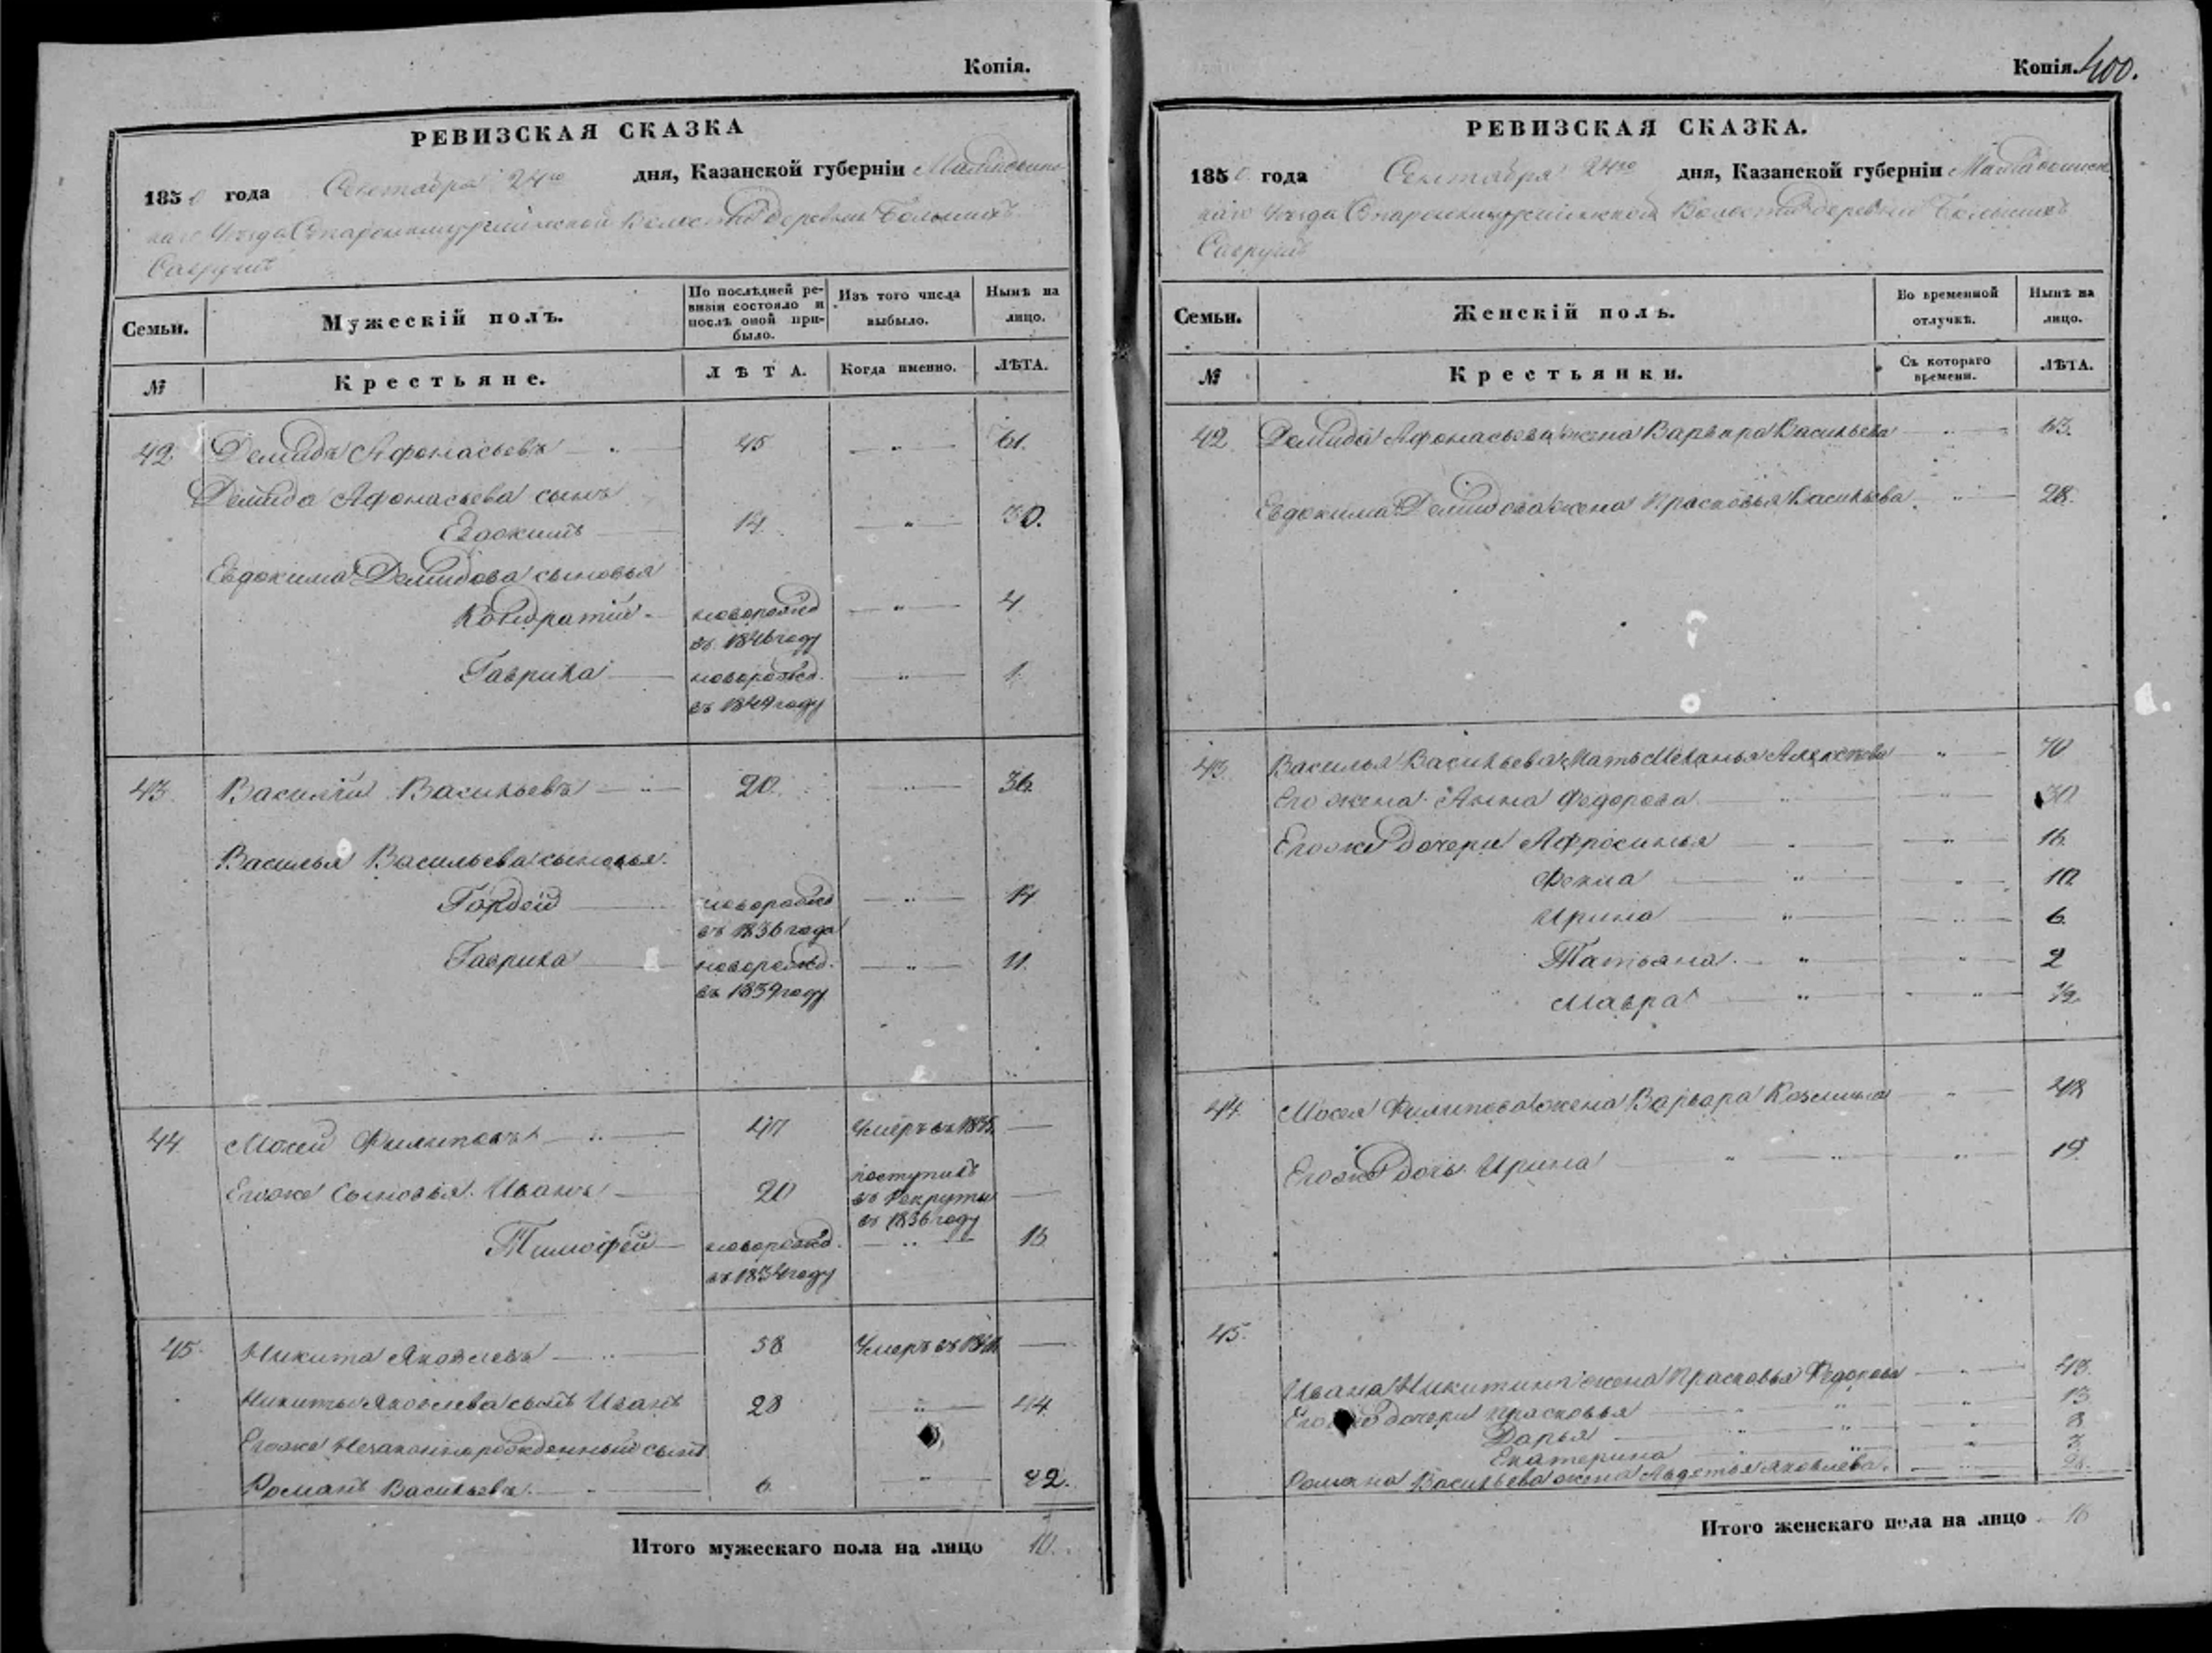 Копія.
РЕВИЗСКАЯ СКАЗКА
1850 года Сентября 24го дня, Казанской губерніи Мамадышс-
каго Уѣзда Волости деревни Большихъ
Савруш
Семьи. Мужескій полъ. По послѣдней ре-визіи состояло и послѣ оной при-было. Изъ того числа выбыло. Нынѣ на лицо.
№ Крестьяне. ЛѢТА. Когда именно. ЛѢТА.
42. Демидъ Афонасьевъ — " — 45 — " — 61.
Демида Афонасьева сынъ
Евдокимъ — 14. — " — 30.
Евдокима Демидова сыновья
Кондратий — новорожд — " — 4.
въ 1846 году
Гаврила — новорожд. — " — 1.
въ 1849 году
43. Василій Васильевъ — " — 20. — " — 36.
Василья Васильева сыновья.
Гордей — новорожд — " — 14
въ 1836 года
Гаврила — новорожд. — " — 11.
въ 1839 году
44. Мосей Филиповъ — " — 47 Умеръ въ —
Егоже сыновья. Иванъ — 20 поступилъ
въ рекруты —
въ 1836 году
Тимофей — новорожд. — " — 15
въ 1834 году
45. Никита Яковлевъ — " — 58 Умеръ въ —
Никиты Яковлева сынъ Иванъ 28 — " — 44.
Егоже незаконнорожденный сынъ
Романъ Васильевъ. — 6. — " — 22.
Итого мужескаго пола на лицо 10.
Копія. 400.
РЕВИЗСКАЯ СКАЗКА.
1850 года Сентября 24го дня, Казанской губерніи Мамадышс-
каго Уѣзда Волости деревни Большихъ
Савруш
Семьи. Женскій полъ. Во временной отлучкѣ. Нынѣ на лицо.
№ Крестьянки. Съ котораго времени. ЛѢТА.
42 Демида Афонасьева жена Варвара Васильева — " — 63.
Евдокима Демидова жена Прасковья Васильева — " — 28.
43. Василья Васильева Мать Меланья Алексѣева " — 70
Егоже жена. Анна Федорова — " — 30.
Егоже дочери Афросинья — " — 16.
Фекла — " — 10.
Ирина — " — 6.
Татьяна. — " — 2
Мавра — " — 1/2.
44. Мосея Филипова жена Варвара Козмина — " — 48
Егоже дочь Ирина — " — 19
45.
Ивана Никитина жена Прасковья Федорова — " — 43.
Егоже дочери Прасковья — " — 13.
Дарья — " — 8
Екатерина — " — 3.
Романа Васильева жена Авдотья Яковлева. — " —
Итого женскаго пола на лицо 16